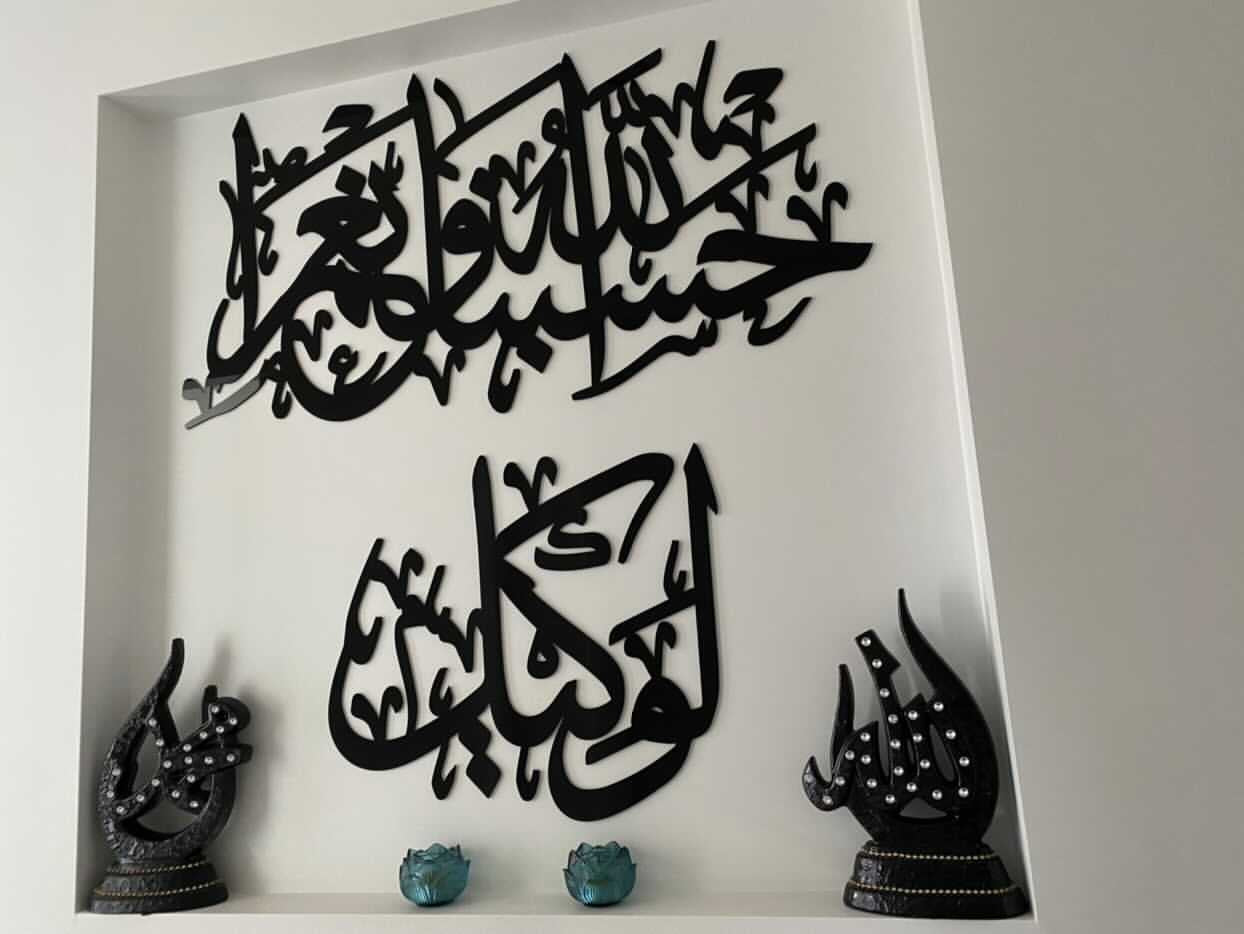 حسبنا الله ونعم ا
لوكيل
الله
محمد